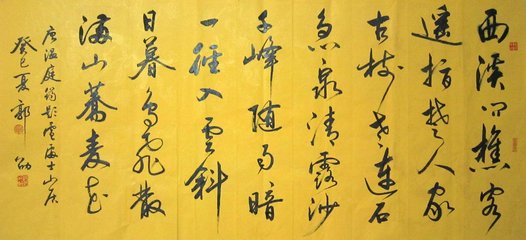 西溪问樵客
遥指楚人家
古树老连石
急泉清露沙
千峰随雨暗
一径入雲斜
日暮鸟飛散
满山蕎麦花
唐温庭筠题盧處士山居
癸巳夏 郭